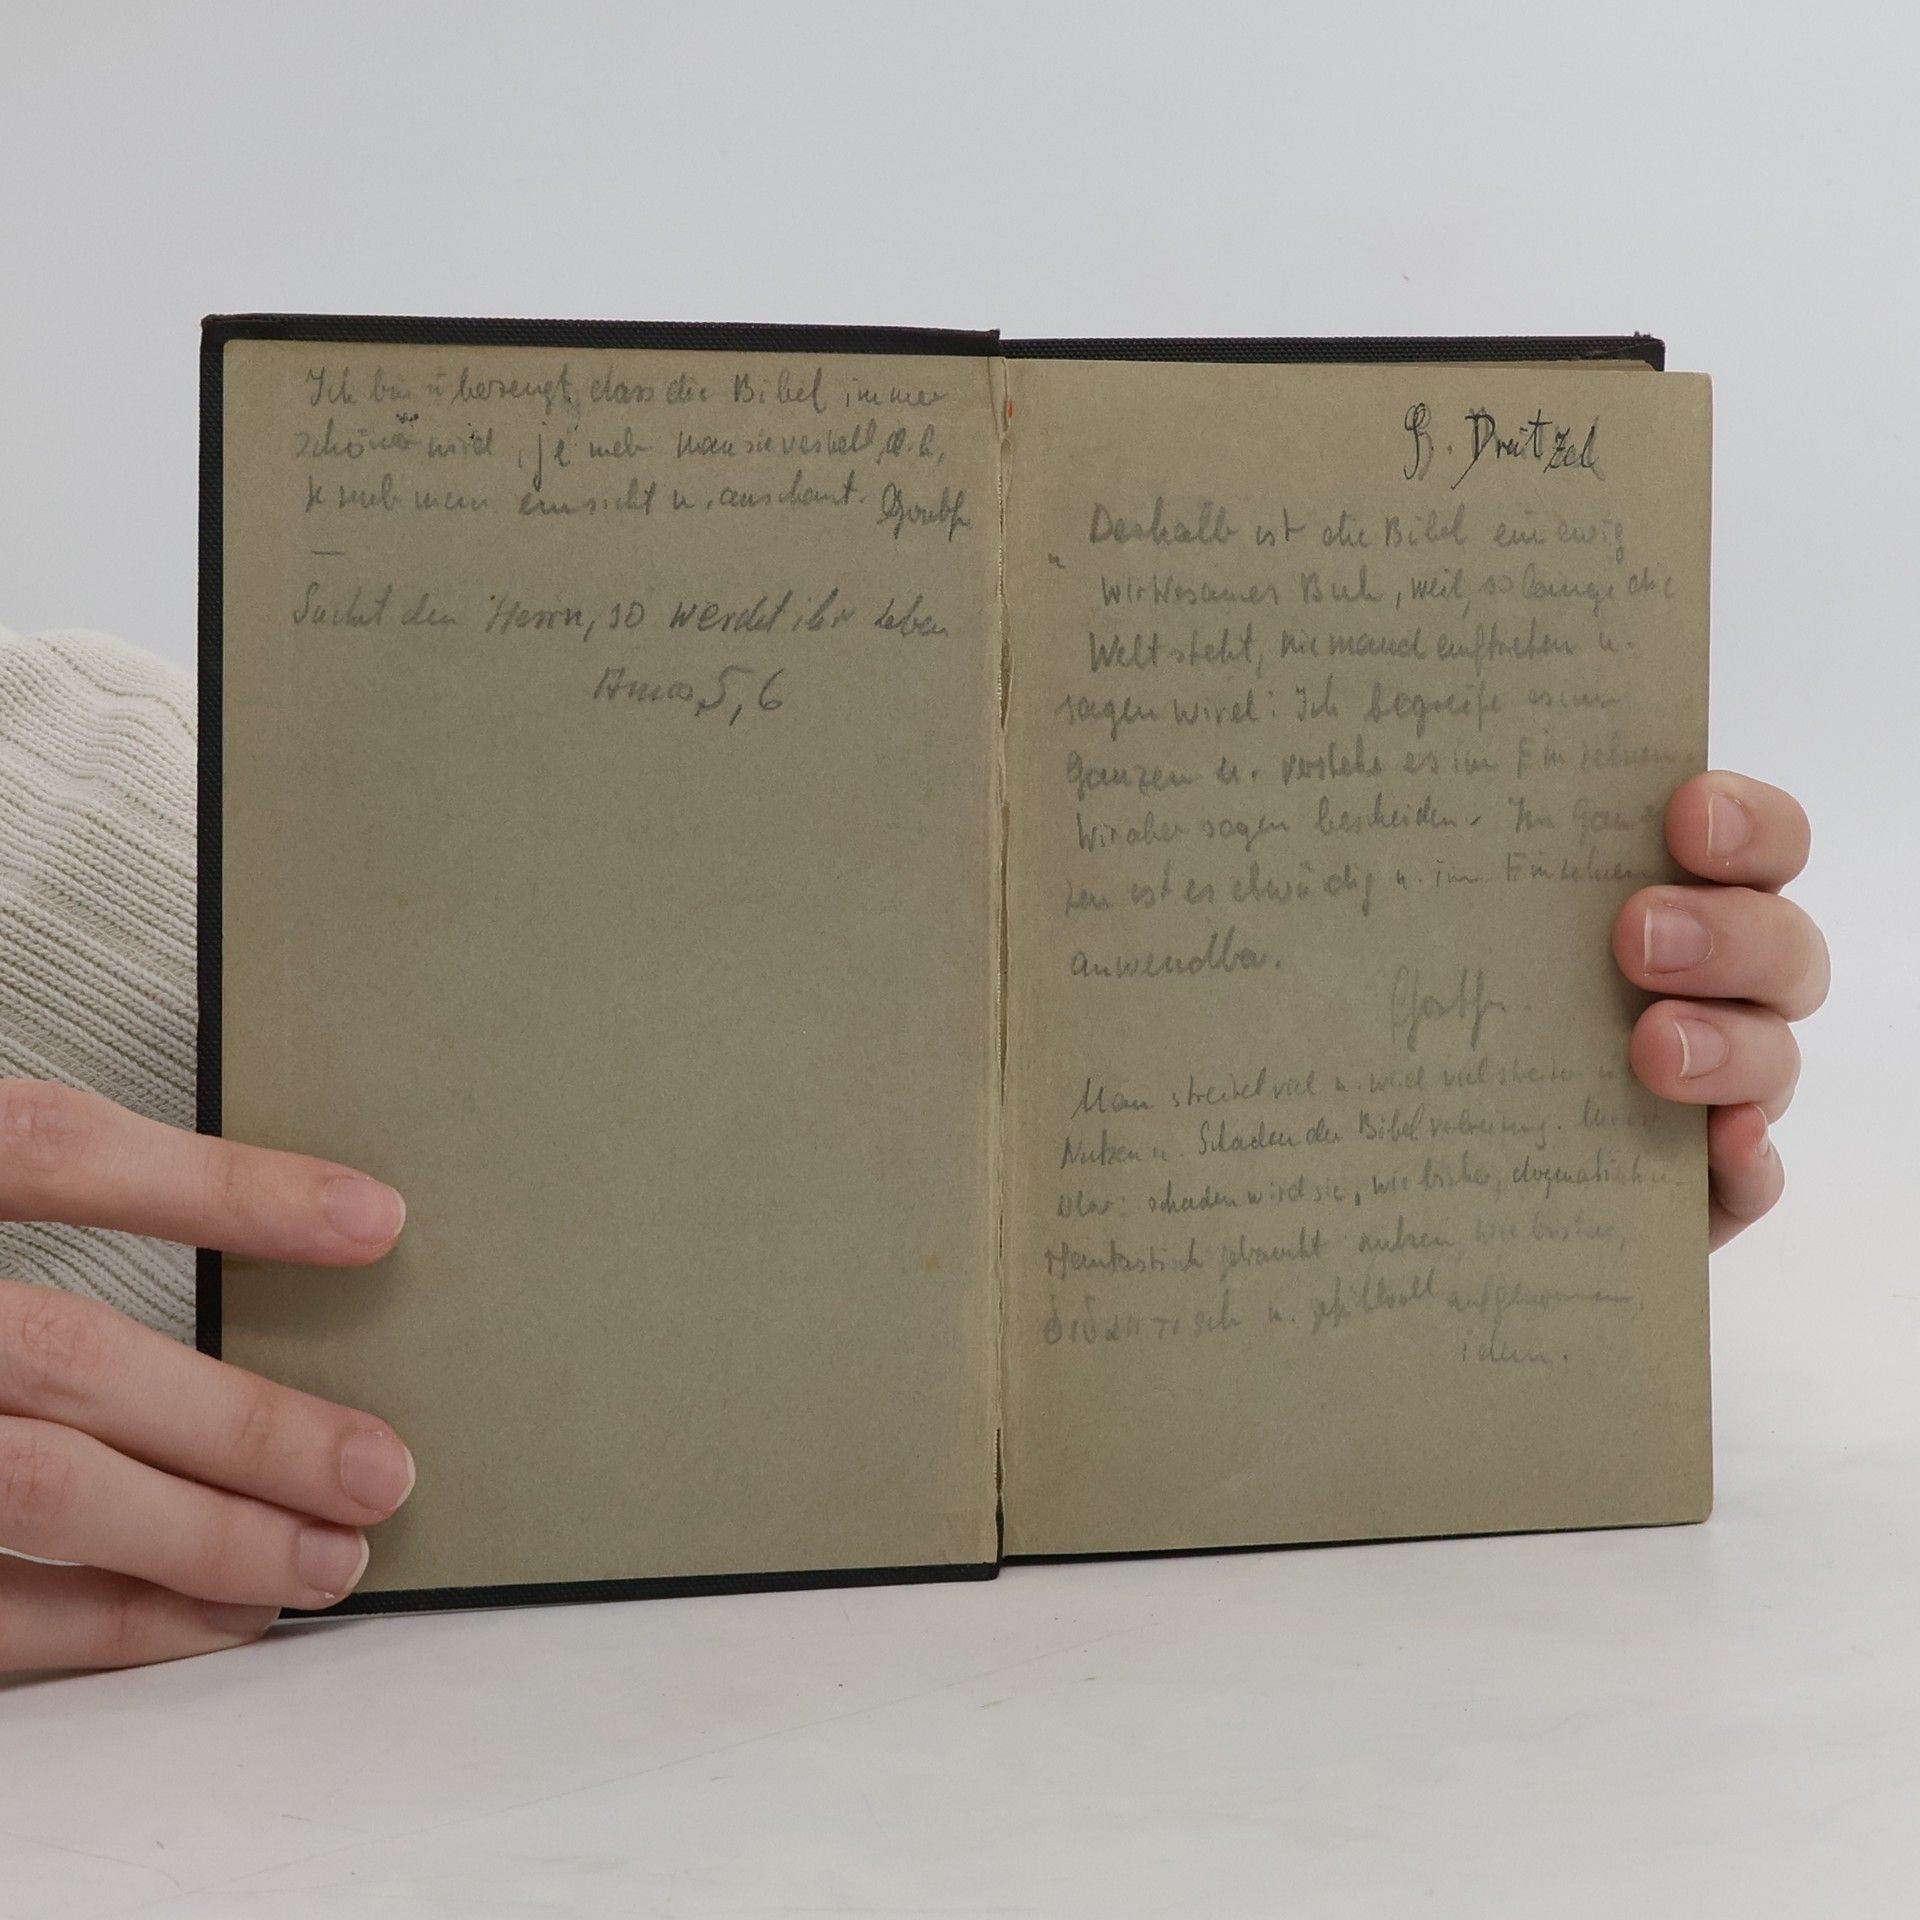 Ich bin überzeugt, dass die Bibel immer
schöner wird, je mehr man sie versteht, d.h.,
je mehr man einsieht u. anschaut. Goethe
—
Suchet den Herrn, so werdet ihr leben
Amos, 5, 6
Dreitzel
„ Deshalb ist die Bibel ein ewig
wirksames Buch, weil, so lange die
Welt steht, niemand auftreten u.
sagen wird: Ich begreife es im
Ganzen u. verstehe es im Einzelnen.
Wir aber sagen bescheiden. Im Gan-
zen ist es ehrwürdig u. im Einzelnen
anwendbar.
Goethe.
Man streitet viel u. wird viel streiten
Nutzen u. Schaden der Bibelverbreitung.
klar: schaden wird sie, wie bisher, dogmatisch u.
phantastisch gebraucht nutzen, wie bisher,
didaktisch u. gefühlvoll aufgenommen.
idem.